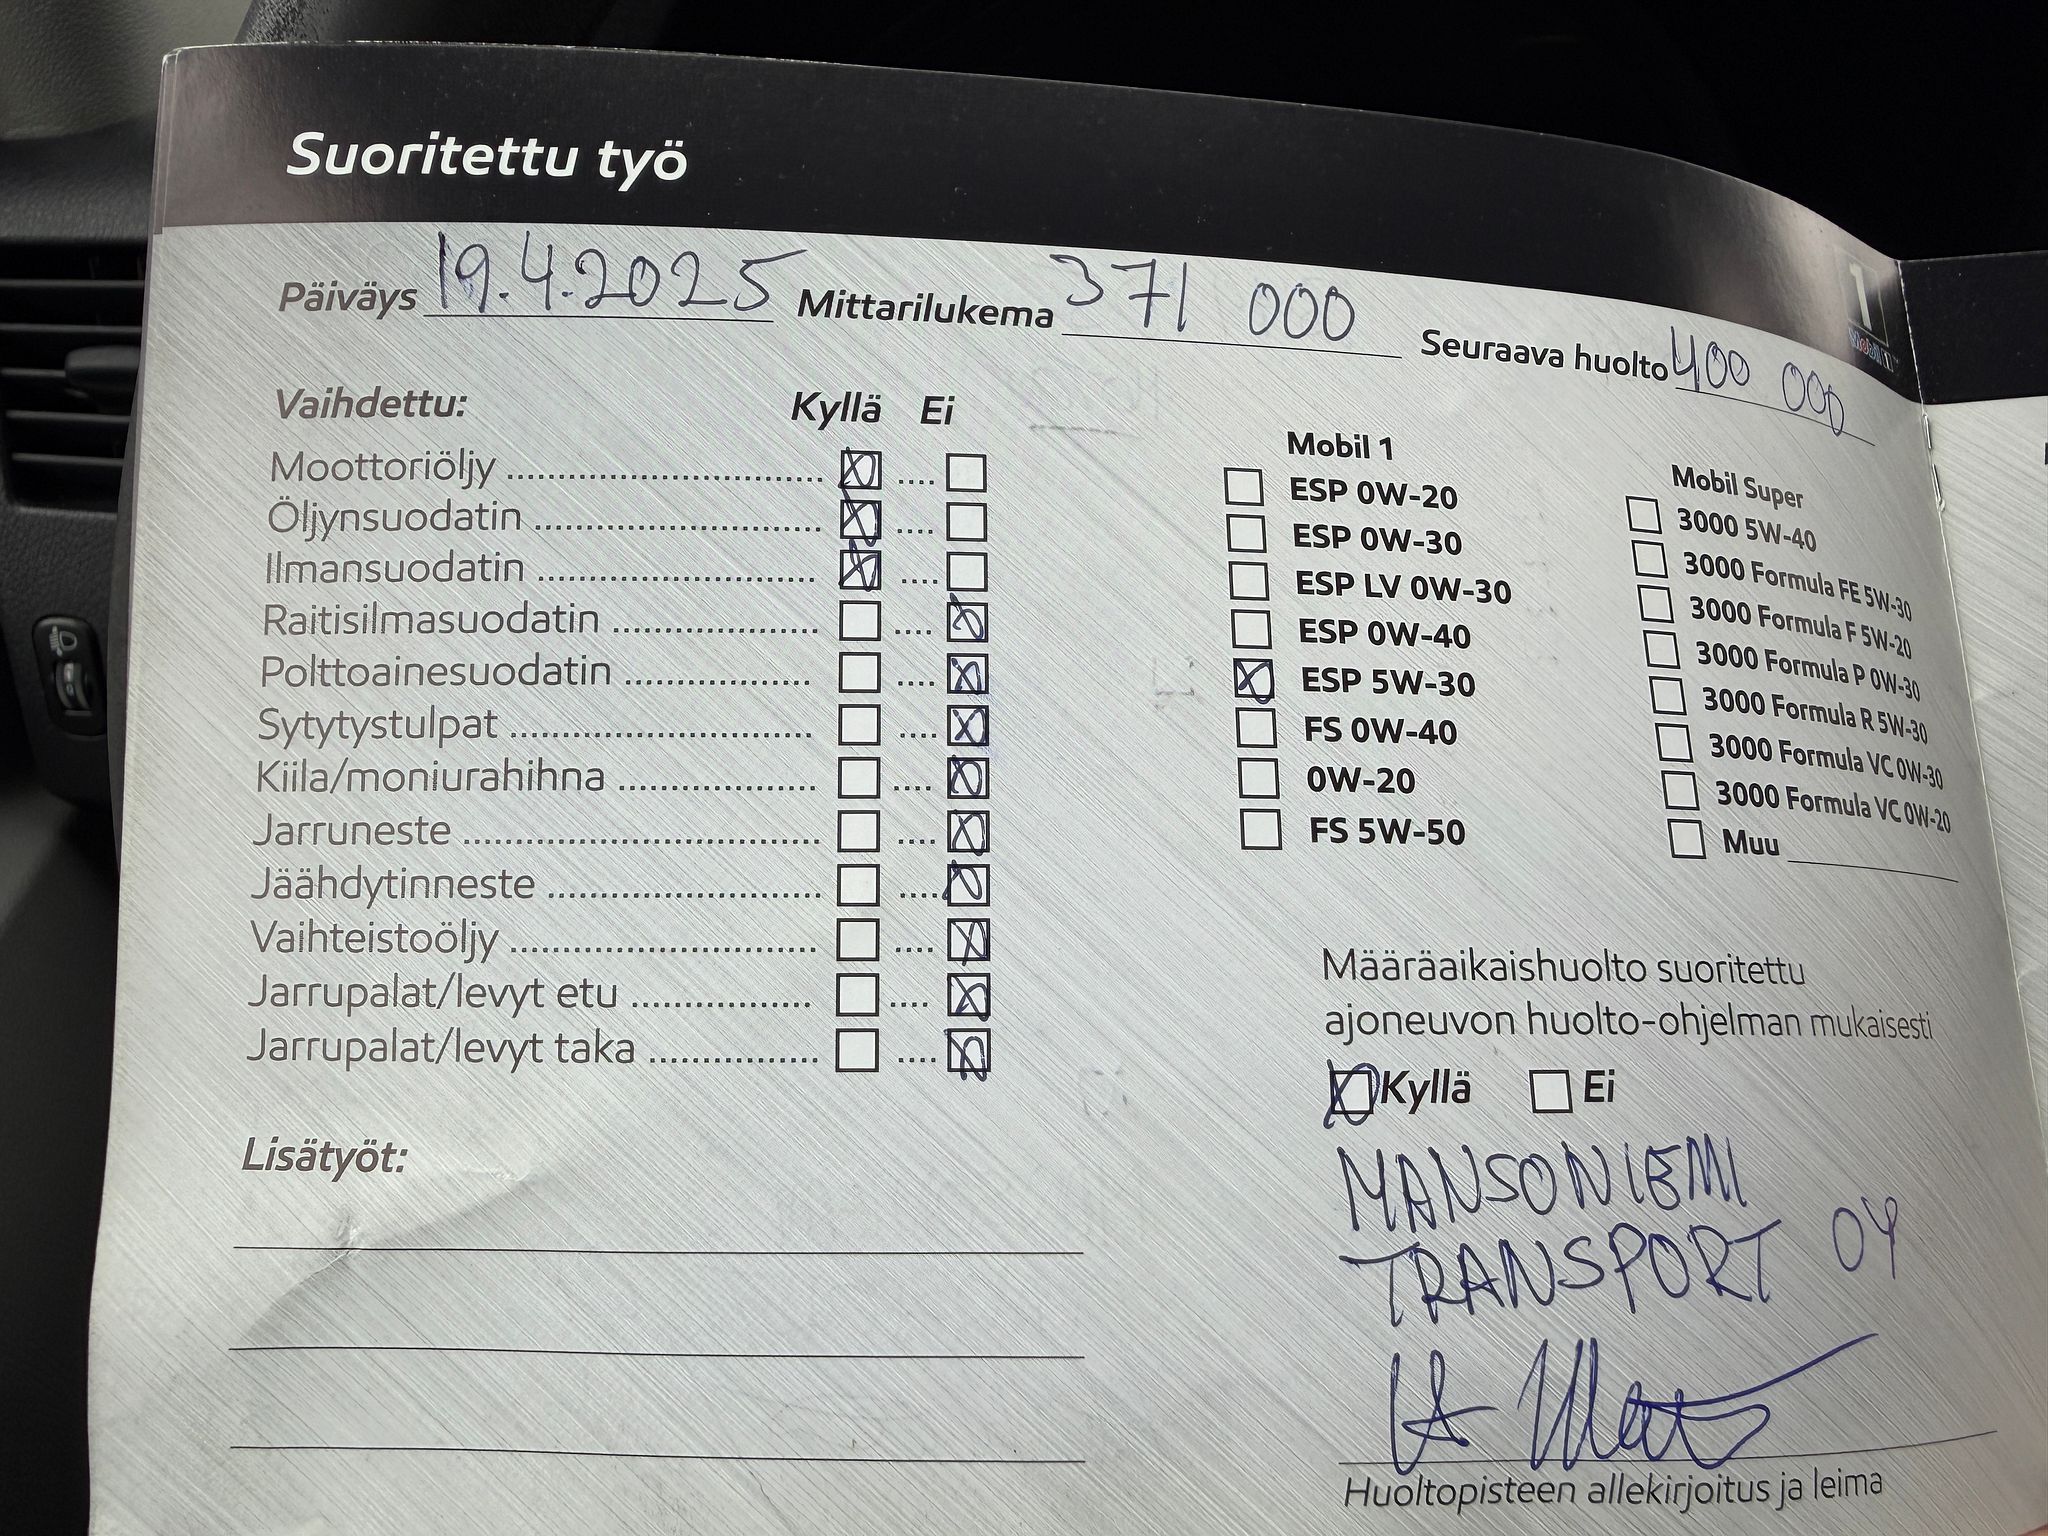 Suoritettu työ
Päiväys 19.4.2025 Mittarilukema 371 000 Seuraava huolto 400 000
1
Mobil 1
Vaihdettu: Kyllä Ei
Moottoriöljy
Öljynsuodatin
Ilmansuodatin
Raitisilmasuodatin
Polttoainesuodatin
Sytytystulpat
Kiila/moniurahihna
Jarruneste
Jäähdytinneste
Vaihteistoöljy
Jarrupalat/levyt etu
Jarrupalat/levyt taka
Lisätyöt:
Mobil 1
ESP 0W-20
ESP 0W-30
ESP LV 0W-30
ESP 0W-40
ESP 5W-30
FS 0W-40
0W-20
FS 5W-50
Mobil Super
3000 5W-40
3000 Formula FE 5W-30
3000 Formula F 5W-20
3000 Formula P 0W-30
3000 Formula R 5W-30
3000 Formula VC 0W-30
3000 Formula VC 0W-20
Muu
Määräaikaishuolto suoritettu
ajoneuvon huolto-ohjelman mukaisesti
Kyllä Ei
MANSONIEMI
TRANSPORT OY
Huoltopisteen allekirjoitus ja leima